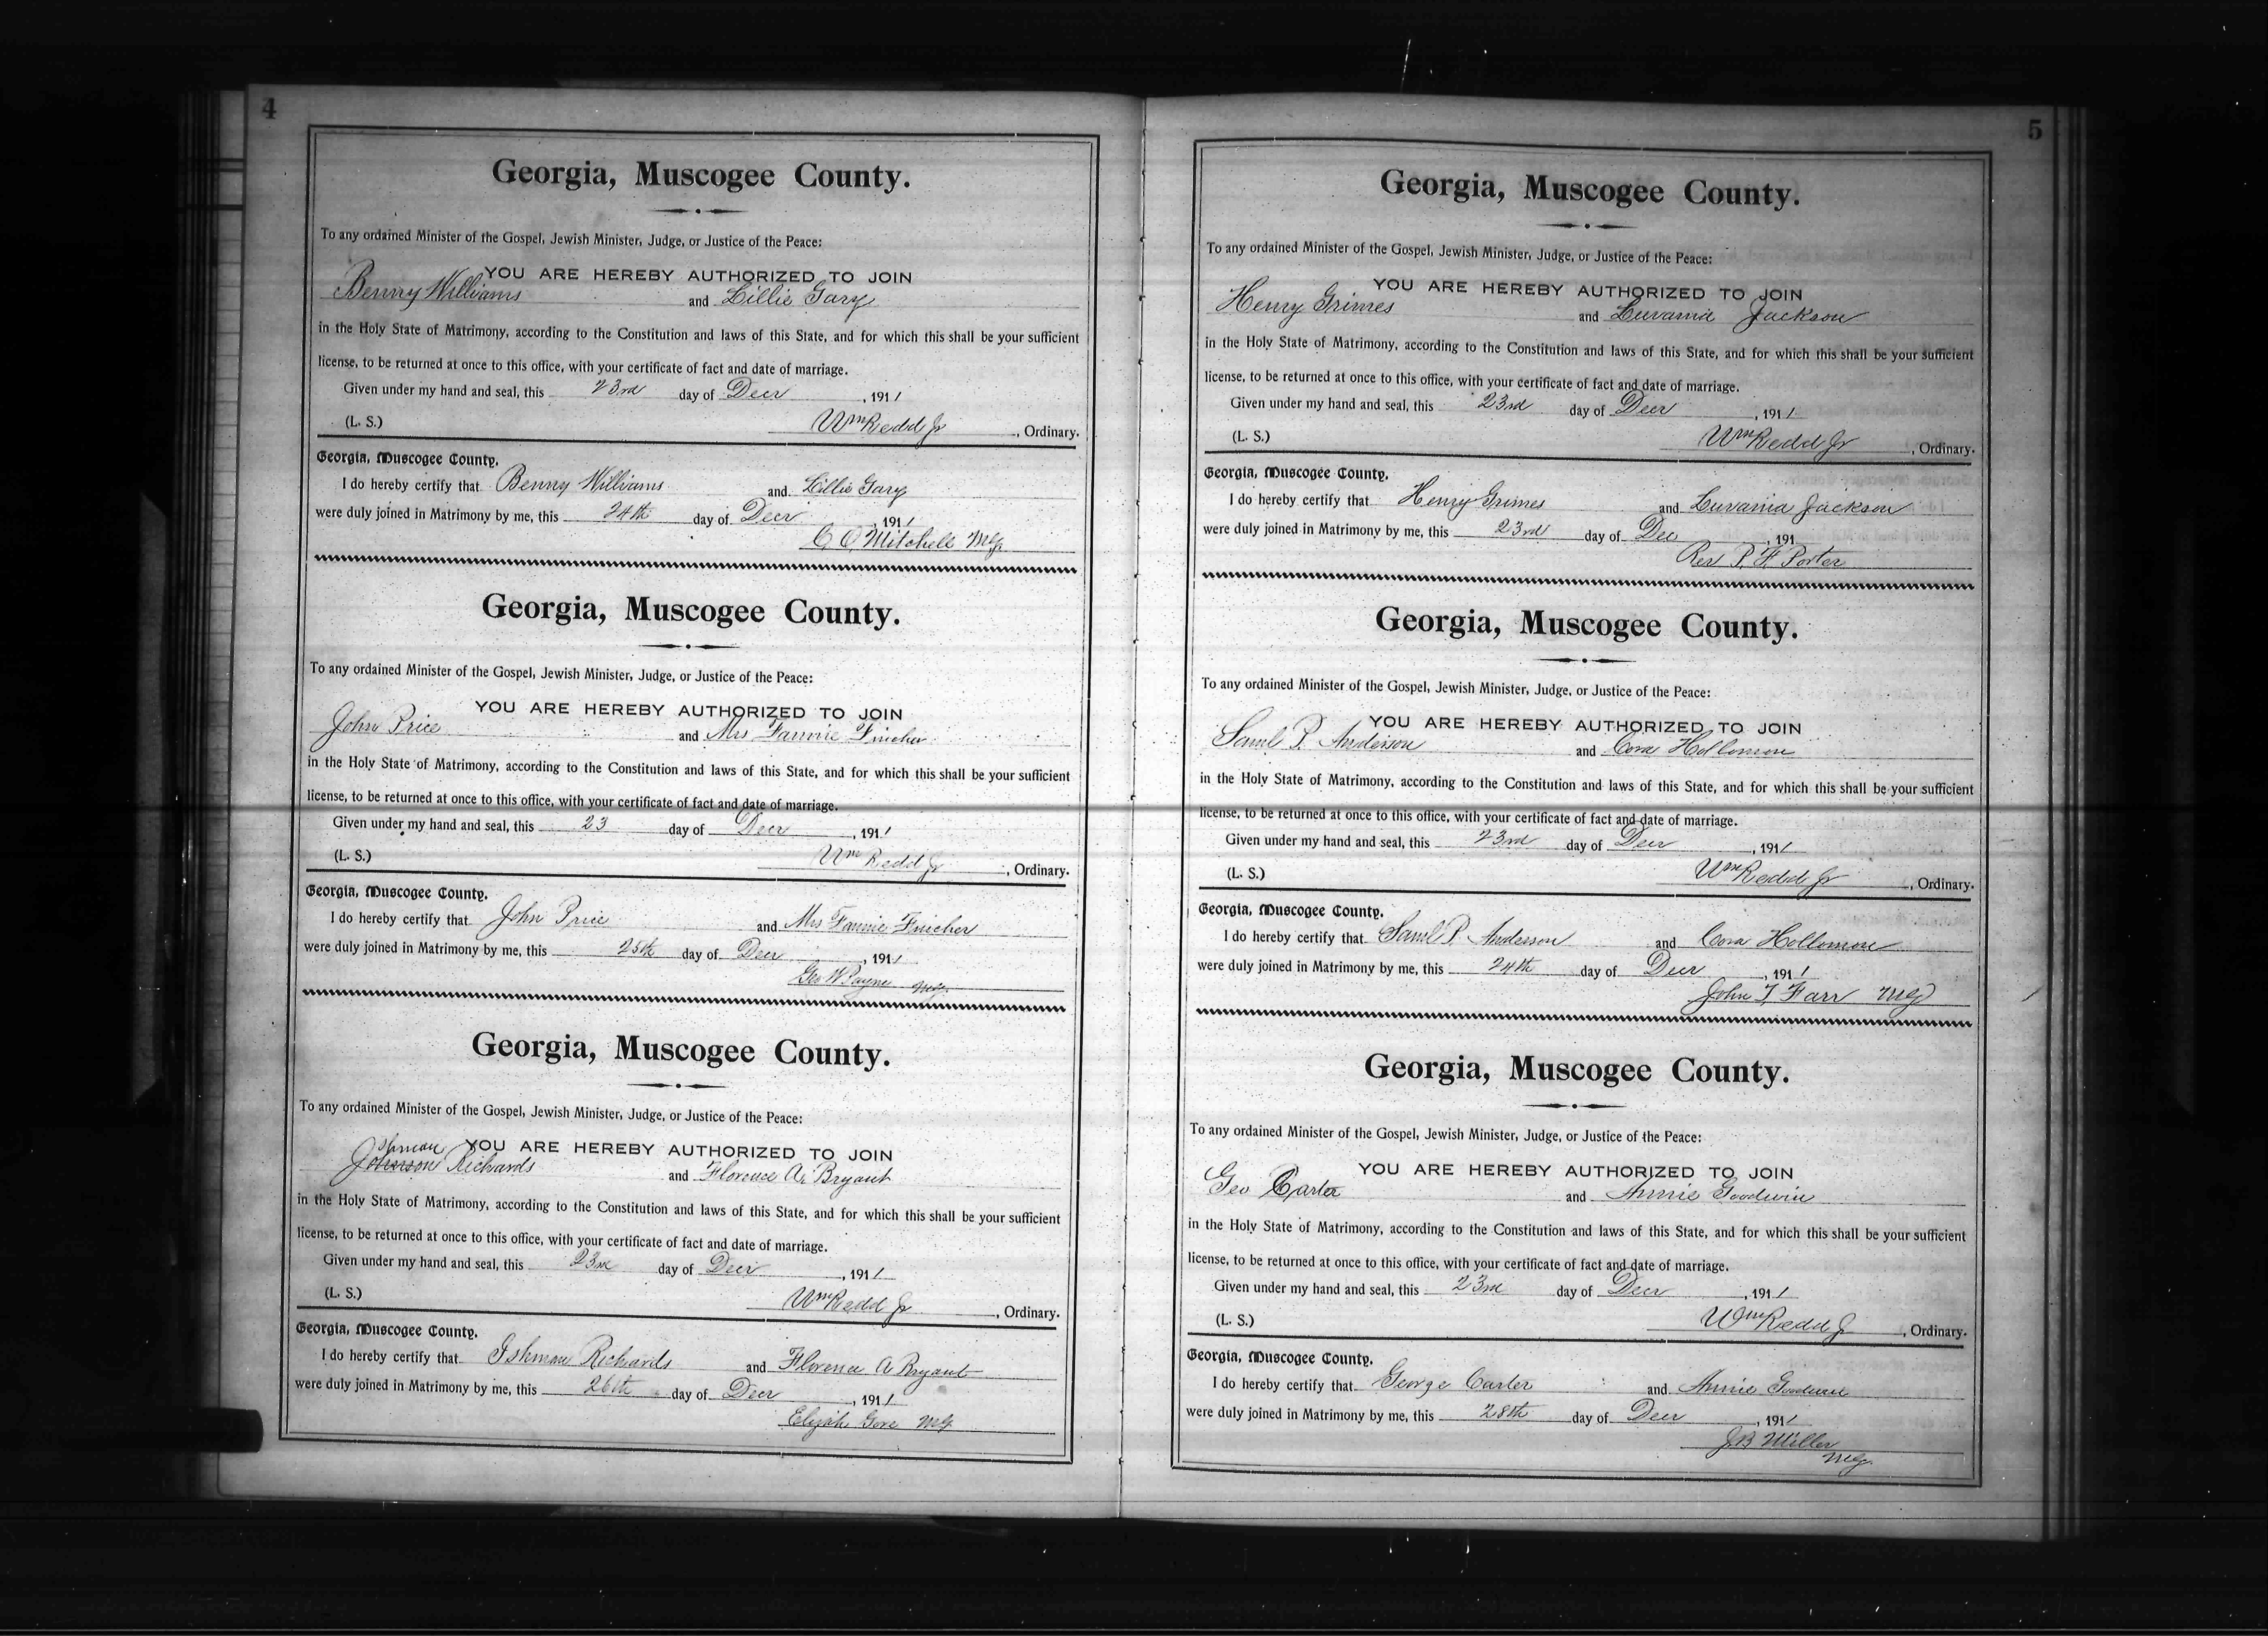 4
Georgia, Muscogee County.
To any ordained Minister of the Gospel, Jewish Minister, Judge, or Justice of the Peace:
YOU ARE HEREBY AUTHORIZED TO JOIN
Benny Williams and Lillie Gary
in the Holy State of Matrimony, according to the Constitution and laws of this State, and for which this shall be your sufficient
license, to be returned at once to this office, with your certificate of fact and date of marriage.
Given under my hand and seal, this 23rd day of Decr, 1911
(L. S.) Wm Redd Jr, Ordinary.
Georgia, Muscogee County.
I do hereby certify that Benny Williams and Lillie Gary
were duly joined in Matrimony by me, this 24th day of Decr, 1911
C C Mitchell MG
Georgia, Muscogee County.
To any ordained Minister of the Gospel, Jewish Minister, Judge, or Justice of the Peace:
YOU ARE HEREBY AUTHORIZED TO JOIN
John Price and Mrs Fannie Fincher
in the Holy State of Matrimony, according to the Constitution and laws of this State, and for which this shall be your sufficient
license, to be returned at once to this office, with your certificate of fact and date of marriage.
Given under my hand and seal, this 23 day of Decr, 1911
(L. S.) Wm Redd Jr, Ordinary.
Georgia, Muscogee County.
I do hereby certify that John Price and Mrs Fannie Fincher
were duly joined in Matrimony by me, this 25th day of Decr, 1911
Geo W Payne MG
Georgia, Muscogee County.
To any ordained Minister of the Gospel, Jewish Minister, Judge, or Justice of the Peace:
YOU ARE HEREBY AUTHORIZED TO JOIN
Johnson Richards and Florence A. Bryant
in the Holy State of Matrimony, according to the Constitution and laws of this State, and for which this shall be your sufficient
license, to be returned at once to this office, with your certificate of fact and date of marriage.
Given under my hand and seal, this 23rd day of Decr, 1911
(L. S.) Wm Redd Jr, Ordinary.
Georgia, Muscogee County.
I do hereby certify that Ishman Richards and Florence A Bryant
were duly joined in Matrimony by me, this 26th day of Decr, 1911
Elijah Gore MG
5
Georgia, Muscogee County.
To any ordained Minister of the Gospel, Jewish Minister, Judge, or Justice of the Peace:
YOU ARE HEREBY AUTHORIZED TO JOIN
Henry Grimes and Luvania Jackson
in the Holy State of Matrimony, according to the Constitution and laws of this State, and for which this shall be your sufficient
license, to be returned at once to this office, with your certificate of fact and date of marriage.
Given under my hand and seal, this 23rd day of Decr, 1911
(L. S.) Wm Redd Jr, Ordinary.
Georgia, Muscogee County.
I do hereby certify that Henry Grimes and Luvania Jackson
were duly joined in Matrimony by me, this 23rd day of Dec, 191
Rev P. F. Porter
Georgia, Muscogee County.
To any ordained Minister of the Gospel, Jewish Minister, Judge, or Justice of the Peace:
YOU ARE HEREBY AUTHORIZED TO JOIN
Saml P. Anderson and Cora Hollomon
in the Holy State of Matrimony, according to the Constitution and laws of this State, and for which this shall be your sufficient
license, to be returned at once to this office, with your certificate of fact and date of marriage.
Given under my hand and seal, this 23rd day of Decr, 1911
(L. S.) Wm Redd Jr, Ordinary.
Georgia, Muscogee County.
I do hereby certify that Saml P. Anderson and Cora Hollomon
were duly joined in Matrimony by me, this 24th day of Decr, 1911
John T. Farr MG
Georgia, Muscogee County.
To any ordained Minister of the Gospel, Jewish Minister, Judge, or Justice of the Peace:
YOU ARE HEREBY AUTHORIZED TO JOIN
Geo Carter and Annie Goodwin
in the Holy State of Matrimony, according to the Constitution and laws of this State, and for which this shall be your sufficient
license, to be returned at once to this office, with your certificate of fact and date of marriage.
Given under my hand and seal, this 23rd day of Decr, 1911
(L. S.) Wm Redd Jr, Ordinary.
Georgia, Muscogee County.
I do hereby certify that George Carter and Annie Goodwin
were duly joined in Matrimony by me, this 28th day of Decr, 1911
J B Miller
MG